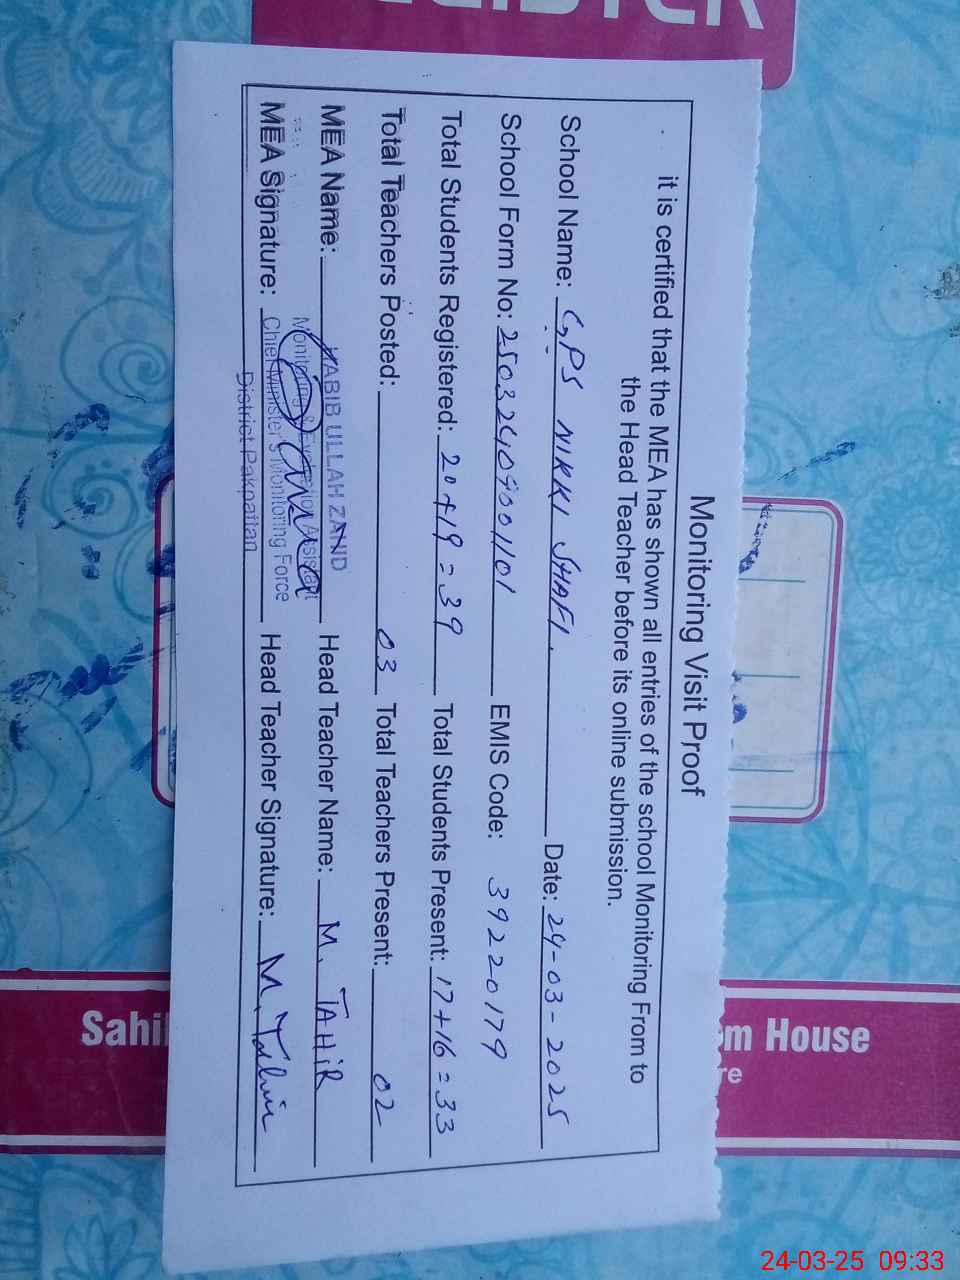 REGISTER
Monitoring Visit Proof
it is certified that the MEA has shown all entries of the school Monitoring From to
the Head Teacher before its online submission.
School Name: GPS NIKKI SHAFI. Date: 24-03-2025
School Form No: 25032409001101 EMIS Code: 39220179
Total Students Registered: 20+19=39 Total Students Present: 17+16=33
Total Teachers Posted: 03 Total Teachers Present: 02
MEA Name: HABIB ULLAH ZAHID Head Teacher Name: M. TAHIR
Monitoring & Evaluation Assistant
MEA Signature: Chief Minister's Monitoring Force Head Teacher Signature: M. Tahir
District Pakpattan
Sahi
m House
re
24-03-25 09:33